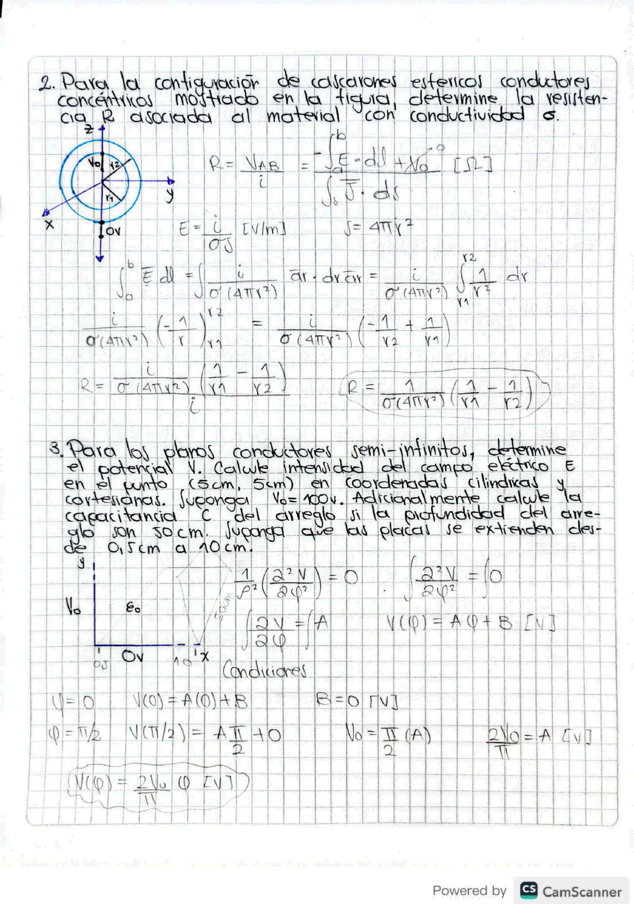 2. Para la configuración de cascarones esfericos conductores
concéntricos mostrado en la figura, determine la resisten-
cia R asociada al material con conductividad σ.
z
V₀ r2
r1
y
x
0V
R = V_AB / i = (-∫ₐᵇ E · dl + V₀ → 0) / (∫ₛ J · ds) [Ω]
E = i / σs [V/m]   s = 4πr²
∫ₐᵇ E dl = ∫ i / σ(4πr²) ar · dr ar = i / σ(4πr²) ∫_{r1}^{r2} 1/r² dr
i / σ(4πr²) (-1/r)_{r1}^{r2} = i / σ(4πr²) (-1/r2 + 1/r1)
R = (i / σ(4πr²) (1/r1 - 1/r2)) / i   R = 1 / σ(4πr²) (1/r1 - 1/r2)
3. Para los planos conductores semi-infinitos, determine
el potencial V. Calcule intensidad del campo eléctrico E
en el punto (5cm, 5cm) en coordenadas cilíndricas y
cartesianas. Suponga V₀ = 100v. Adicionalmente calcule la
capacitancia C del arreglo si la profundidad del arre-
glo son 50cm. Suponga que las placas se extienden des-
de 0,5cm a 10cm.
y
V₀ ε₀ 50cm
0.5 0V 10 x
1/ρ² (∂²V/∂φ²) = 0   ∫ ∂²V/∂φ² = ∫0
∫ ∂V/∂φ = ∫A   V(φ) = Aφ + B [V]
Condiciones
φ = 0   V(0) = A(0) + B   B = 0 [V]
φ = π/2   V(π/2) = A π/2 + 0   V₀ = π/2 (A)   2V₀/π = A [V]
V(φ) = 2V₀/π φ [V]
Powered by CS CamScanner